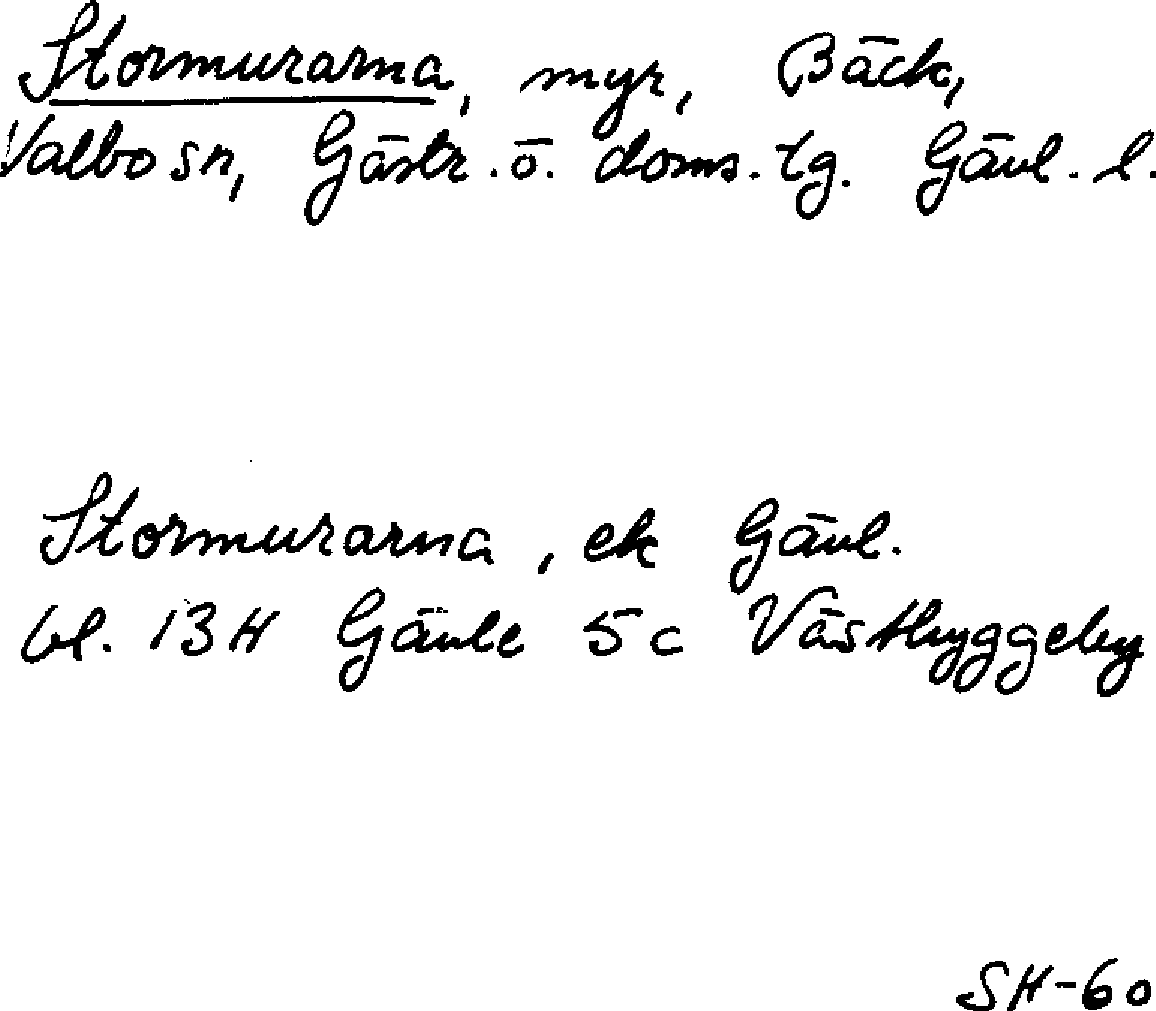 Stormurarna, myr, Bäck,
Valbo sn, Gästr. ö. doms. tg. Gävl. l.
Stormurarna, ek Gävl.
bl. 13H Gävle 5c Västhyggeby
SH-60